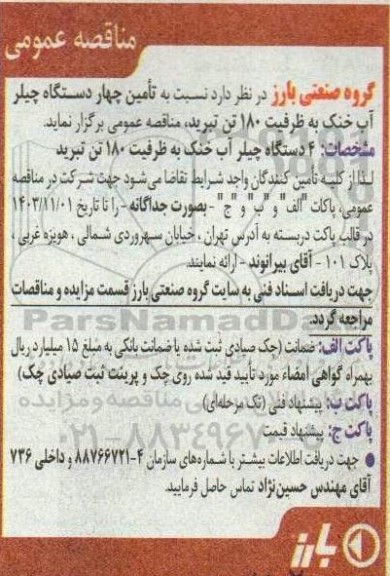 مناقصه عمومی
گروه صنعتی بارز در نظر دارد نسبت به تأمین چهار دستگاه چیلر
آب خنک به ظرفیت ۱۸۰ تن تبرید، مناقصه عمومی برگزار نماید.
مشخصات: ۴ دستگاه چیلر آب خنک به ظرفیت ۱۸۰ تن تبرید
لذا از کلیه تأمین کنندگان واجد شرایط تقاضا می‌شود جهت شرکت در مناقصه
عمومی، پاکات "الف" و "ب" و "ج" - بصورت جداگانه - را تا تاریخ ۱۴۰۳/۱۱/۰۱
در قالب پاکت دربسته به آدرس تهران ، خیابان سهروردی شمالی ، هویزه غربی ،
پلاک ۱۰۱ - آقای بیرانوند - ارائه نمایند.
جهت دریافت اسناد فنی به سایت گروه صنعتی بارز قسمت مزایده و مناقصات
مراجعه گردد.
پاکت الف: ضمانت (چک صیادی ثبت شده یا ضمانت بانکی به مبلغ ۱۵ میلیارد ریال
بهمراه گواهی امضاء مورد تأیید قید شده روی چک و پرینت ثبت صیادی چک)
پاکت ب: پیشنهاد فنی (تک مرحله‌ای)
پاکت ج: پیشنهاد قیمت
● جهت دریافت اطلاعات بیشتر با شماره‌های سازمان ۴-۸۸۷۶۶۷۲۱ و داخلی ۷۳۶
آقای مهندس حسین‌نژاد تماس حاصل فرمایید.
بارز
ParsNamadData
۰۲۱-۸۸۳۴۹۶۷۰